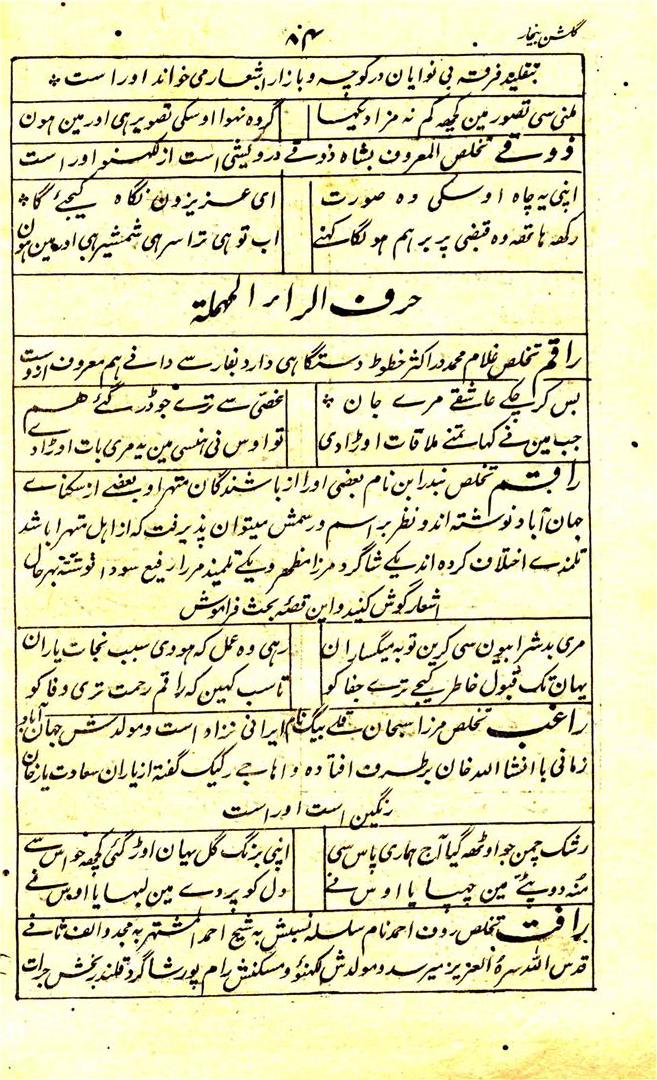 گلشن بیخار
۸۴
بتقلید فرقہ بی نوایان در کوچہ و بازار اشعار می خواند اوراست *
لمنی سی تصور مین کچھ کم نہ مزا دیکہا گروہ نہوا اوسکی تصویر ہی اور مین ہون
ذوقے تخلص المعروف بشاہ ذوقے درویشی است از لکہنو اوراست
اپنی یہ چاہ اوسکی وہ صورت ای عزیزون نگاہ کیجئے گا *
رکھ ہاتھ وہ قبضی پر برہم ہو لگا کہنے اب تو ہی تراسر ہی شمشیر ہی اور مین ہون
حرف الراء المهملة
راقم تخلص غلام محمد در اکثر خطوط دستگاہی دارد بفارسے دانے ہم معروف ازوست
بس کر چکے عاشقے مرے جان * غصّی سے ترے جو ڈر گئے ہم
جب مین نے کہا تمنے ملاقات اوڑا دی تو اوس نی ہنسی مین یہ مری بات اوڑا دے
راقم تخلص بندرابن نام بعضی اورا از باشندگان متہرا و بعضے از سکناے
جہان آباد نوشتہ اند و نظر بر اسم و رسمش میتوان پذیرفت کہ از اہل متہرا باشد
تلمذے اختلاف کردہ اند یکے شاگرد مرزا مظہر و یکے تلمیذ مرزا رفیع سودا نوشتہ بہر حال
اشعار گوش کنید و این قصّہ بحث فراموش
مری بد شرابیون سی کرین توبہ میگساران رہی وہ عمل کہ ہووی سبب نجات یاران
یہان تک قبول خاطر کیجے ترے جفا کو تا سب کہین کہ راقم رحمت تری وفا کو
راغب تخلص مرزا سبحان قلے بیگ نام ایرانی نژاد است و مولدش جہان آباد
زمانی با انشا اللہ خان بر طرف افتادہ و اہاجے رکیک گفتہ از یاران سعادت یار خان
رنگین است اوراست
رشک چمن جو اوٹھ گیا آج ہماری پاس سی اپنی برنگ گل یہان اوڑ گئی کچھ حواس سے
منہ دوپٹے مین چہپایا اوس نے دل کو پردے مین لبہایا اوس نے
رافت تخلص رؤف احمد نام سلسلہ نسبتش بہ شیخ احمد المشتہر بہ مجدد الف ثانے
قدس اللہ سرہ العزیز میرسد و مولدش لکہنؤ و مسکنش رام پور شاگرد قلندر بخش جرات